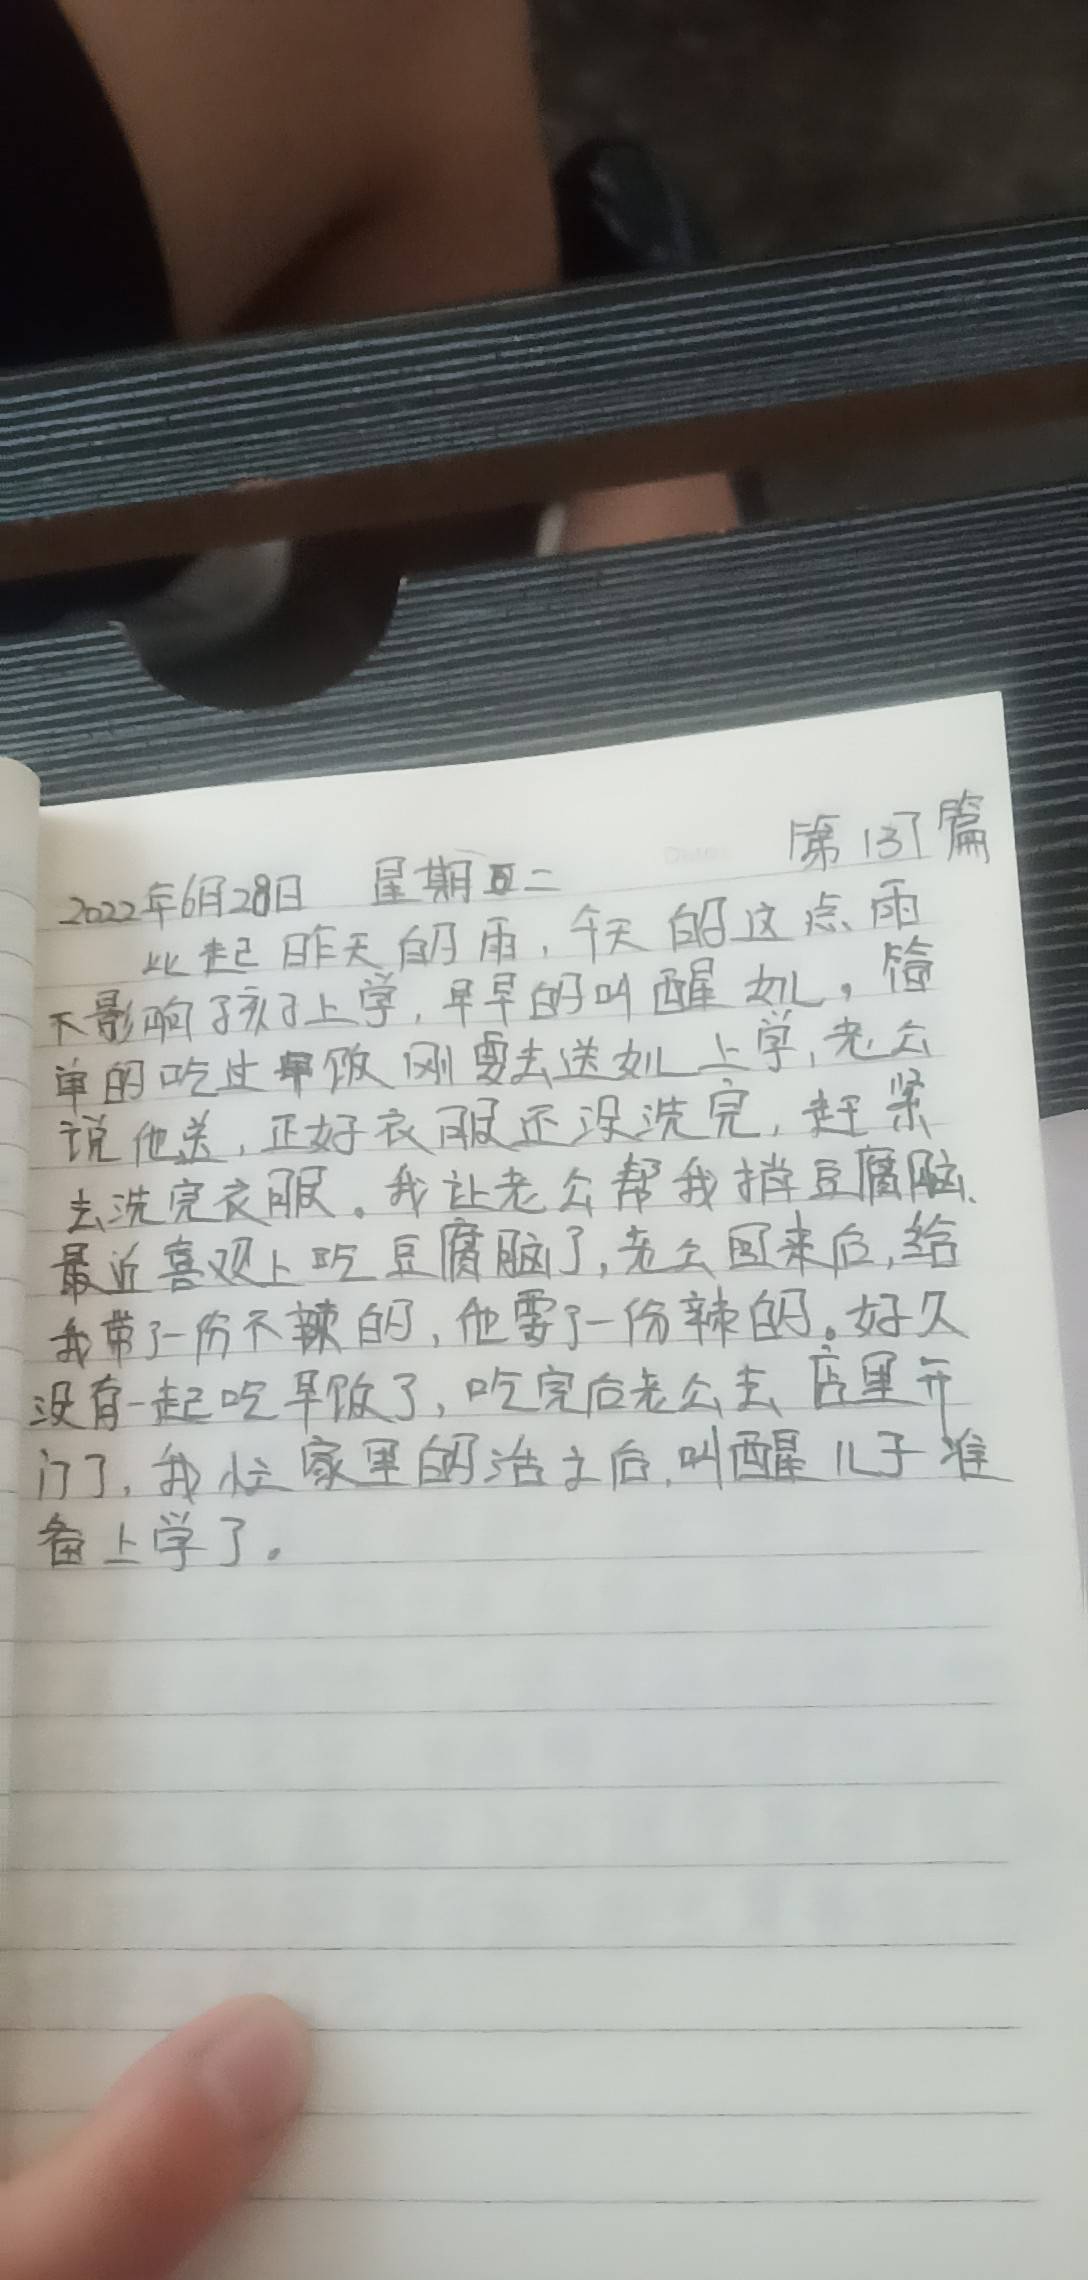 第137篇
2022年6月28日 星期二
比起昨天的雨,今天的这点雨
不影响孩子上学,早早的叫醒女儿,简
单的吃过早饭刚要去送女儿上学,老公
说他送,正好衣服还没洗完,赶紧
去洗完衣服。我让老公帮我捎豆腐脑.
最近喜欢上吃豆腐脑了,老公回来后,给
我带了一份不辣的,他要了一份辣的。好久
没有一起吃早饭了,吃完后老公去店里开
门了,我忙家里的活之后,叫醒儿子准
备上学了。